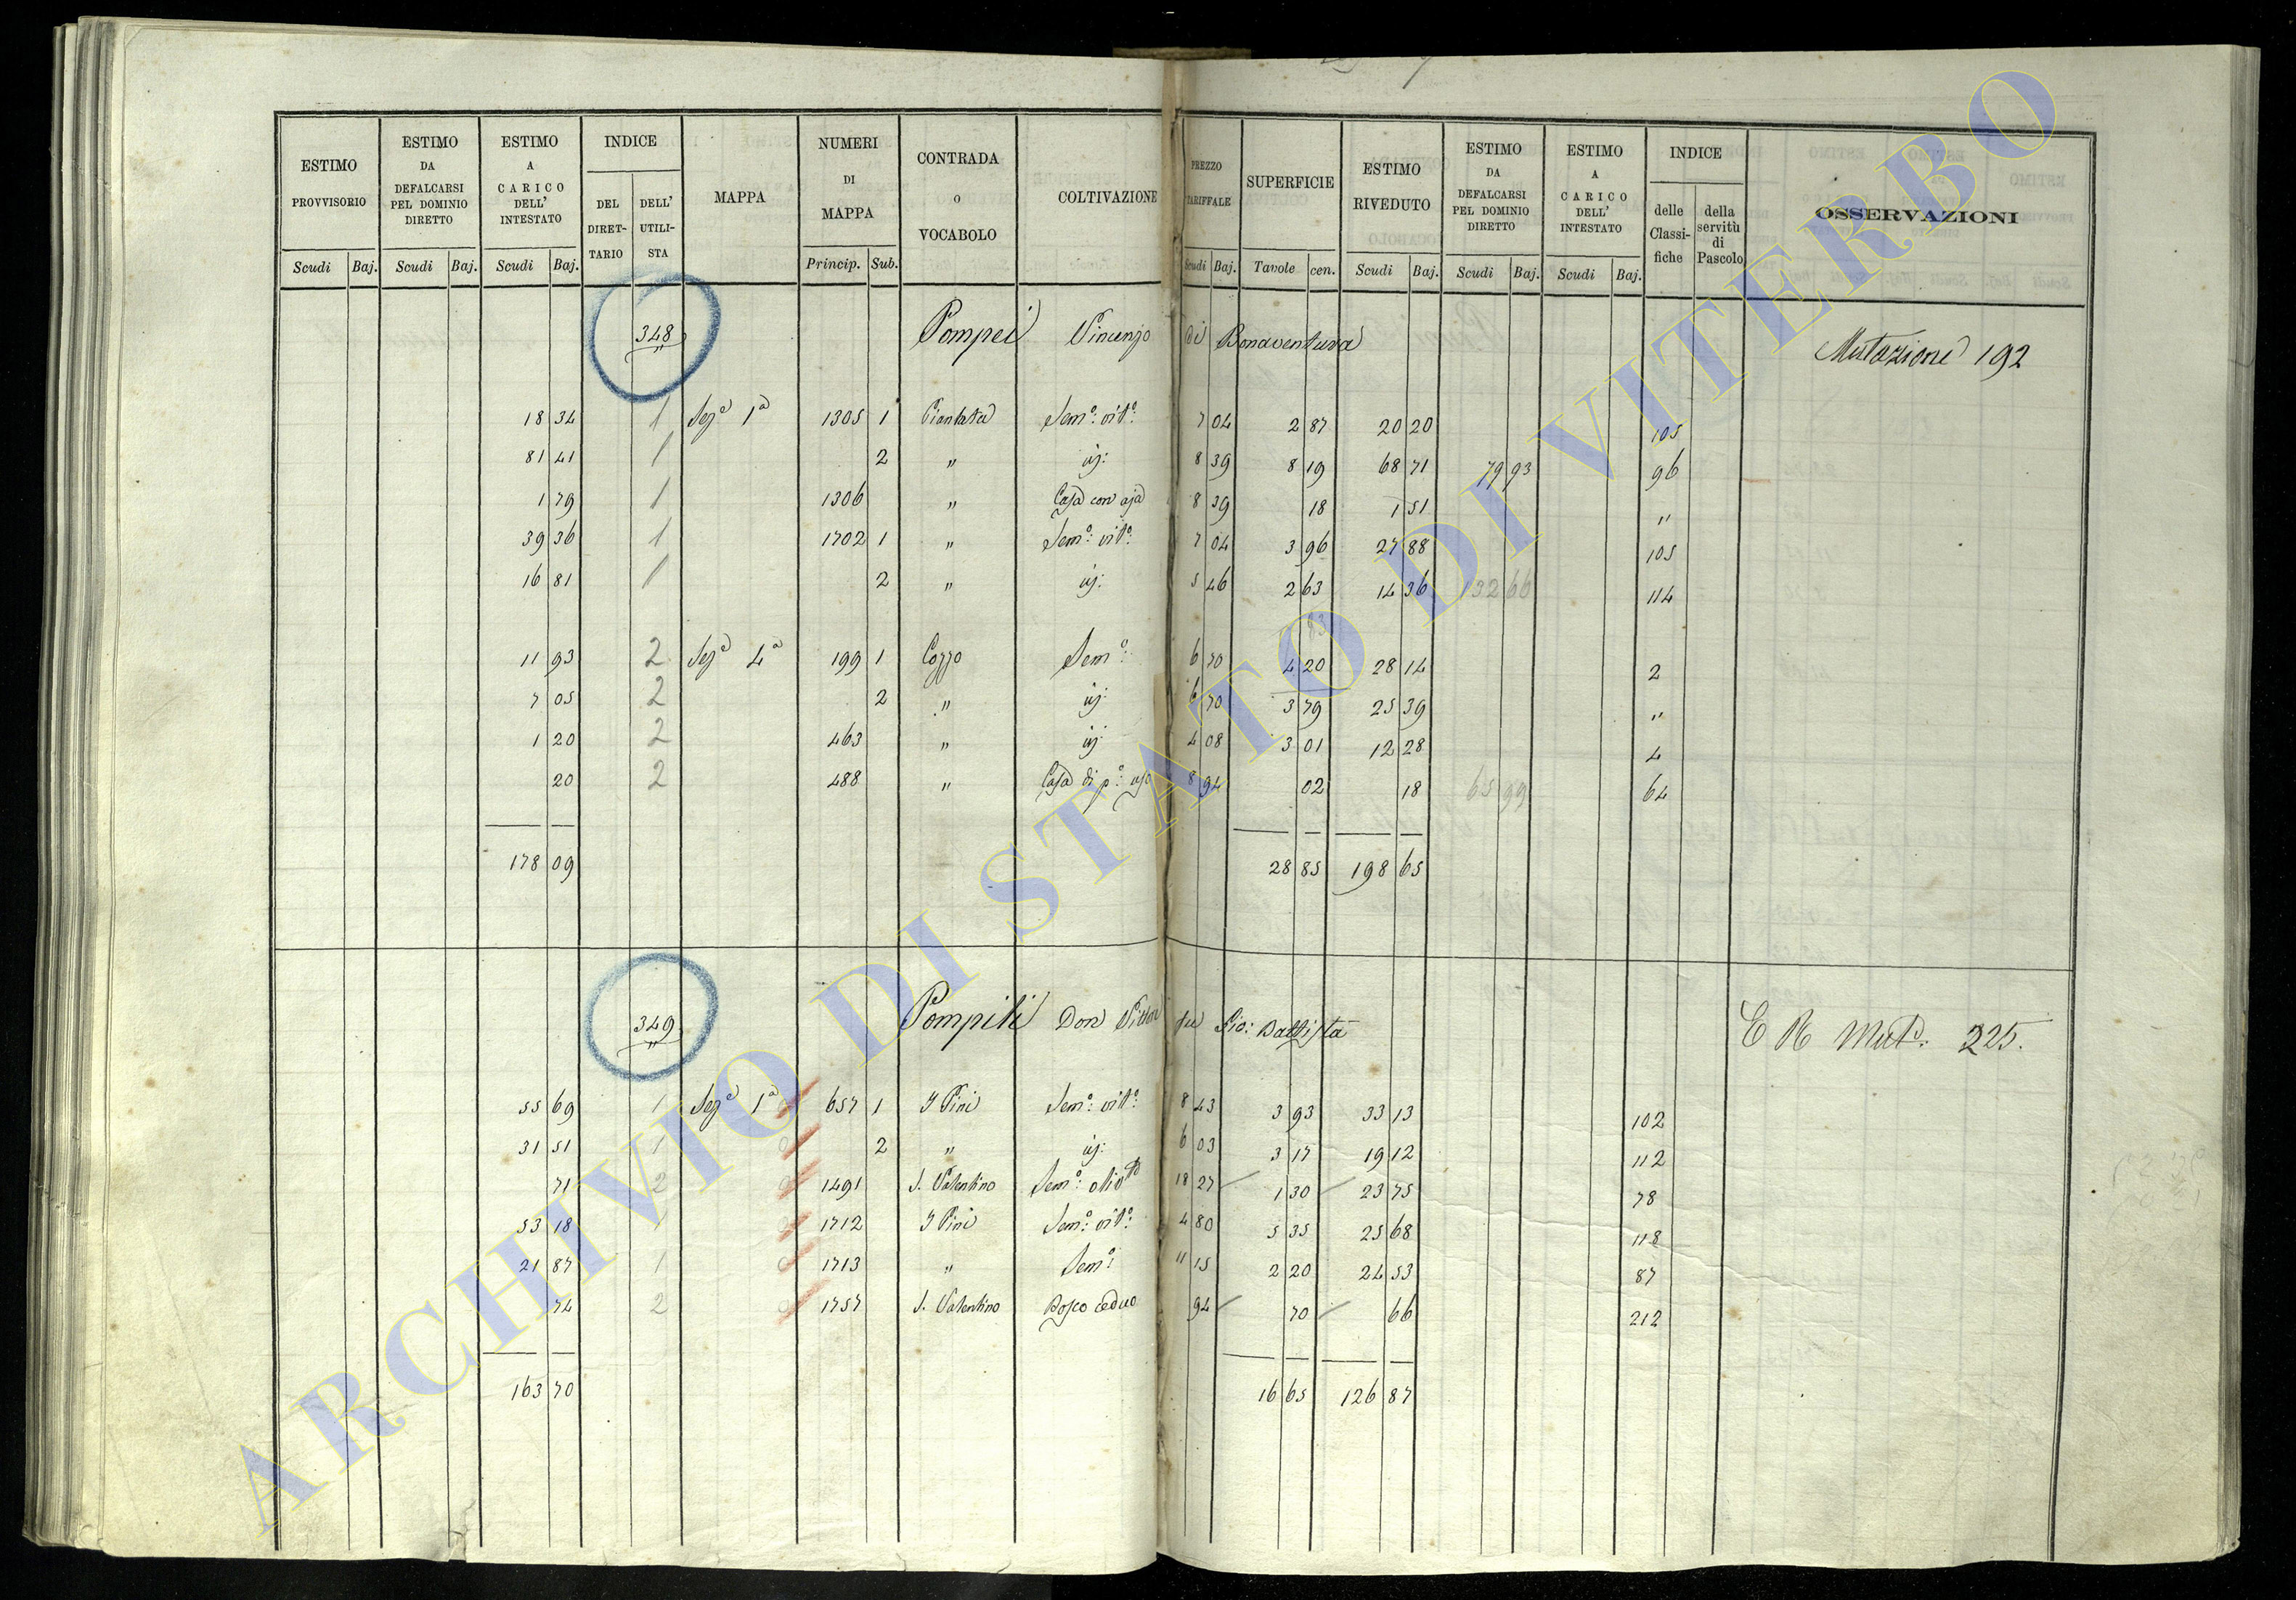 ESTIMO PROVVISORIO | ESTIMO DA DEFALCARSI PEL DOMINIO DIRETTO | ESTIMO A CARICO DELL' INTESTATO | INDICE | MAPPA | NUMERI DI MAPPA | CONTRADA o VOCABOLO | COLTIVAZIONE | PREZZO TARIFFALE | SUPERFICIE | ESTIMO RIVEDUTO | ESTIMO DA DEFALCARSI PEL DOMINIO DIRETTO | ESTIMO A CARICO DELL' INTESTATO | INDICE | OSSERVAZIONI
DEL DIRETTARIO | DELL' UTILISTA | delle Classifiche | della servitù di Pascolo
Scudi Baj. | Scudi Baj. | Scudi Baj. | Princip. Sub. | Scudi Baj. | Tavole cen. | Scudi Baj. | Scudi Baj. | Scudi Baj.
348 Pompei Vincenzo di Bonaventura Mutazione 192
18 34 1 Sez.a 1a 1305 1 Piantata Sem.o vit.o 7 04 2 87 20 20 105
81 41 1 2 " id: 8 39 8 19 68 71 79 93 96
1 79 1 1306 " Casa con aja 8 39 18 1 51 "
39 36 1 1702 1 " Sem.o vit.o 7 04 3 96 27 88 105
16 81 1 2 " id: 5 46 2 63 14 36 132 66 114
11 93 2 Sez.a 4a 199 1 Cozzo Sem.o 6 70 4 20 28 14 2
7 05 2 2 " id: 6 70 3 79 25 39 "
1 20 2 463 " id: 4 08 3 01 12 28 4
20 2 488 " Casa di p.o uso 8 94 02 18 65 99 64
178 09 28 85 198 65
349 Pompili Don fu Gio: Battista E R Mut.a 225.
55 69 1 Sez.a 1a 657 1 I Pini Sem.o vit.o 8 43 3 93 33 13 102
31 51 1 2 " id: 6 03 3 17 19 12 112
71 2 1491 S. Valentino Sem.o oliv.to 18 27 1 30 23 75 78
53 18 1 1712 I Pini Sem.o vit.o 4 80 5 35 25 68 118
21 87 1 1713 " Sem.o 11 15 2 20 24 53 87
74 2 1757 S. Valentino Bosco ceduo 94 70 66 212
163 70 16 65 126 87
ARCHIVIO DI STATO DI VITERBO